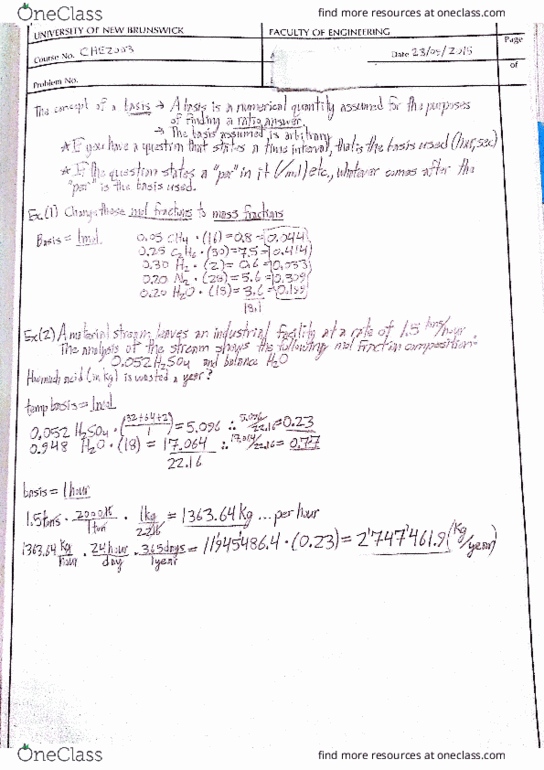 OneClass
find more resources at oneclass.com
UNIVERSITY OF NEW BRUNSWICK
FACULTY OF ENGINEERING
Page
Course No. CHE2003
Date 23/09/2015
of
Problem No.
The concept of a basis → A basis is a numerical quantity assumed for the purposes
of finding a ratio answer.
→ The basis assumed is arbitrary
* If you have a question that states a time interval, that is the basis used (hour, sec)
* If the question states a "per" in it (/ml) etc., whatever comes after the
"per" is the basis used.
Ex.(1) Change those mol fractions to mass fractions
Basis = 1mol.
0.05 CH4 · (16) = 0.8 = 0.044
0.25 C2H6 · (30) = 7.5 = 0.414
0.30 H2 · (2) = 0.6 = 0.033
0.20 N2 · (28) = 5.6 = 0.309
0.20 H2O · (18) = 3.6 = 0.199
18.1
Ex(2) A material stream leaves an industrial facility at a rate of 1.5 tns/hour.
The analysis of the stream shows the following mol fraction composition:
0.052 H2SO4 and balance H2O
How much acid (in kg) is wasted a year?
temp basis = 1mol
0.052 H2SO4 · (32+64+2/1) = 5.096 ∴ 5.096/22.16 = 0.23
0.948 H2O · (18) = 17.064 ∴ 17.064/22.16 = 0.77
22.16
basis = 1 hour
1.5 tons · 2000 lb/1 ton · 1kg/2.2 lb = 1363.64 Kg ... per hour
1363.64 kg/hour · 24 hour/day · 365 days/1 year = 11'945'486.4 · (0.23) = 2'747'461.9 (Kg/year)
OneClass
find more resources at oneclass.com